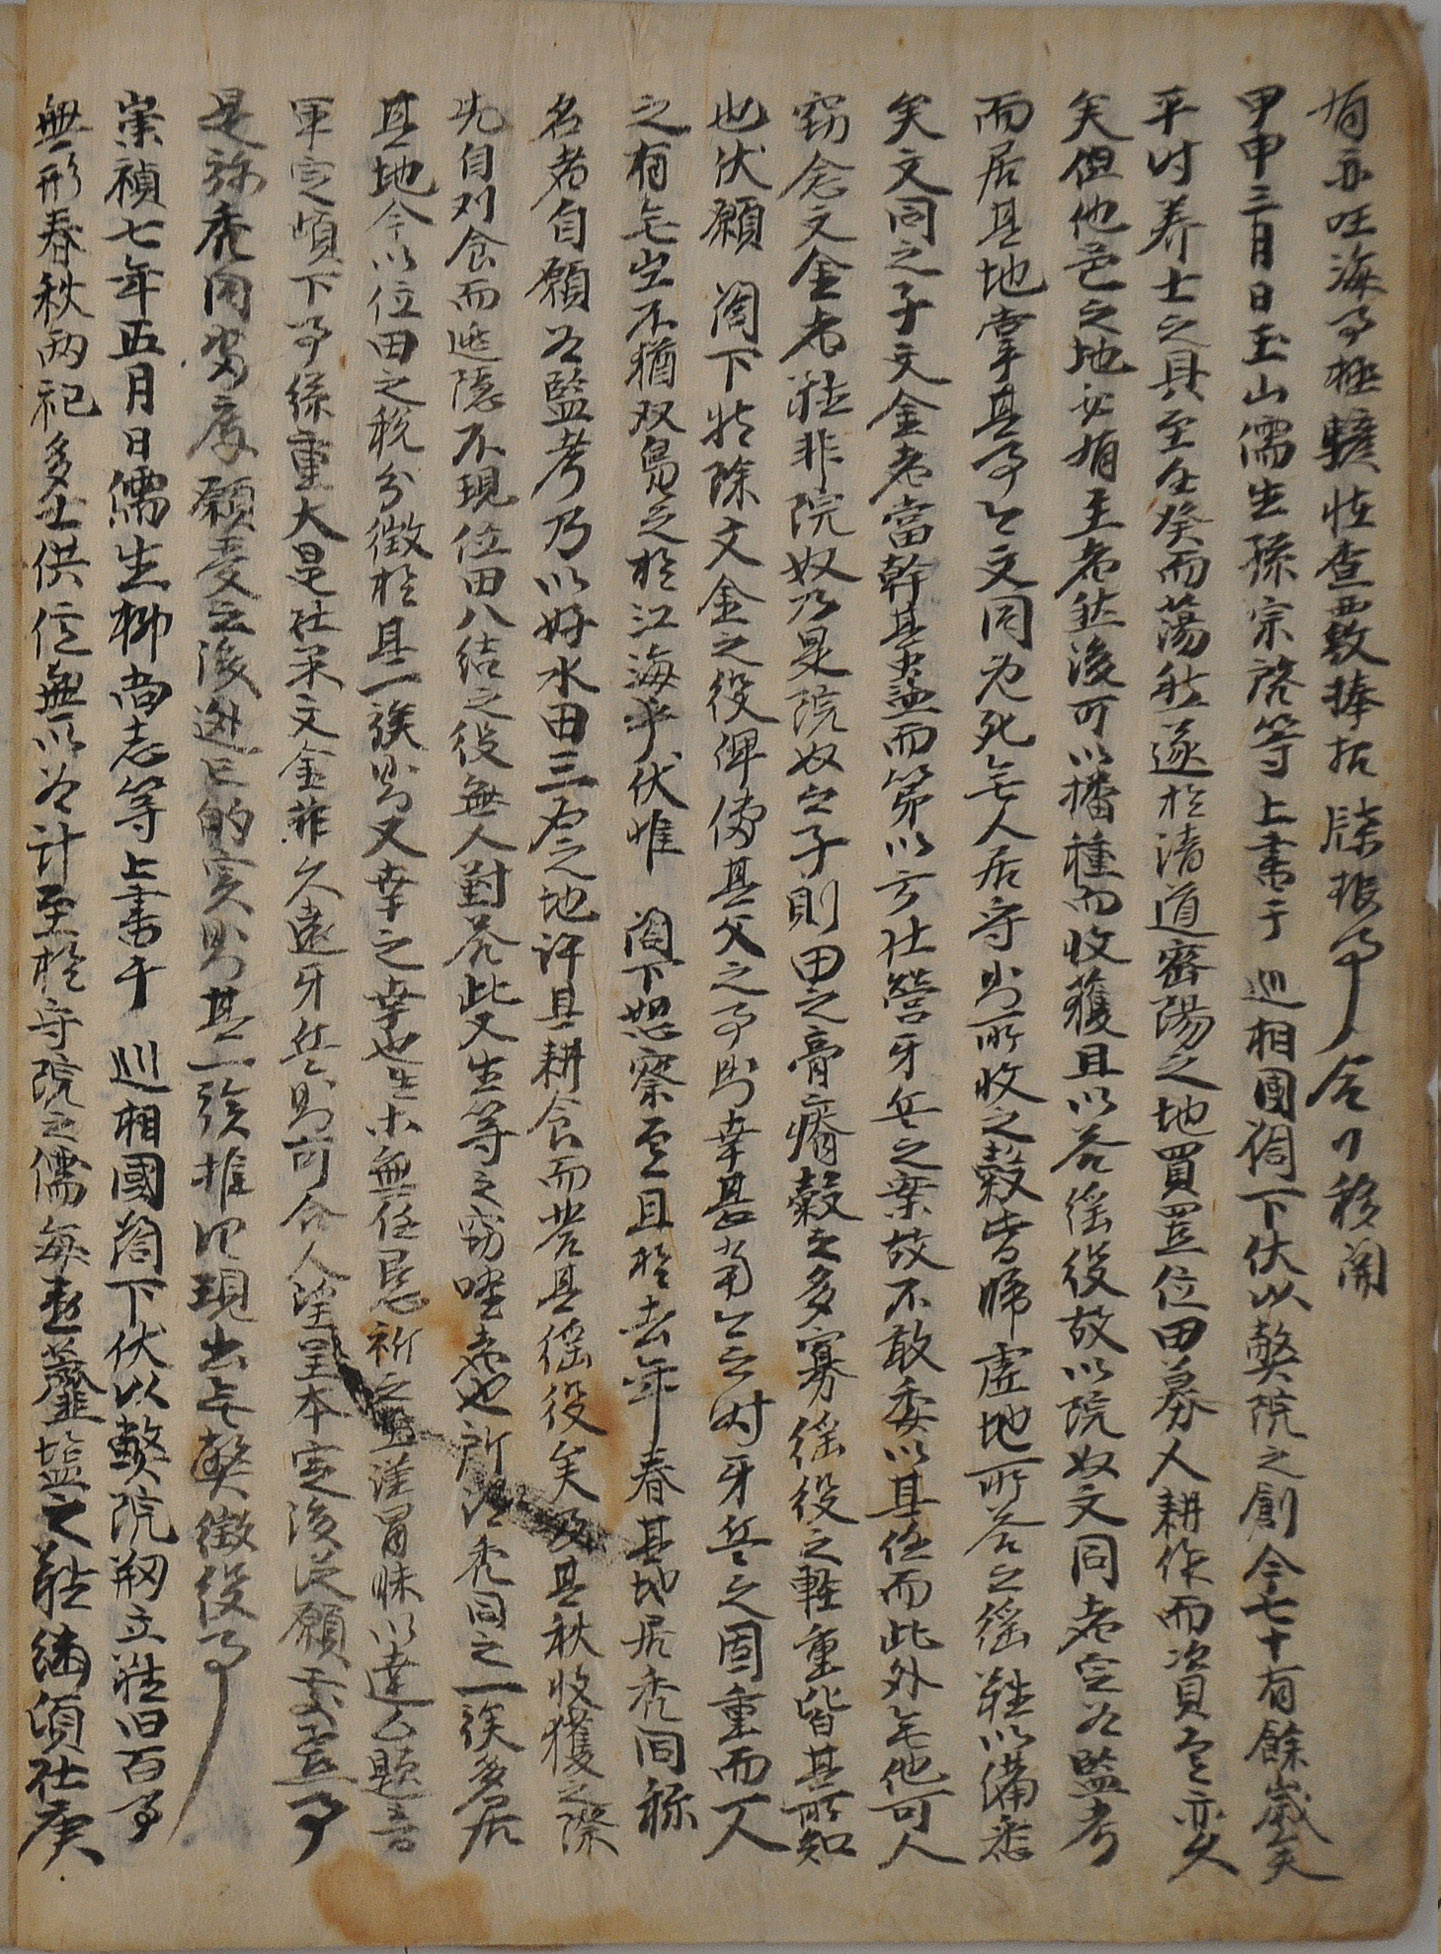 有亦旺海事極騐性查覈捧招牒報事 合行移關
甲申三月日玉山儒生孫宗老等上書于 巡相國閤下伏以弊院之創今七十有餘歲矣
平時养士之具至壬癸而蕩然遂於淸道密陽之地買置位田募人耕作而資之亦久
矣但他邑之地必有主者然後可以播種而收獲且以答徭役故以院奴文同者定爲監考
而居其地掌其事今文同已死無人居守則所收之穀皆歸虛地所答之徭難以備悉
矣文同之子文金者當幹其蠱而第以方仕營牙兵之案故不敢委以其任而此外無他可人
窃念文金者雖非院奴乃是院奴之子則田之膏瘠穀之多寡徭役之輕重皆其所知
也伏願 閤下特除文金之役俾傳其父之事則幸甚當今之時牙兵之固重而一人
之有無豈不猶双鳧之於江海乎伏惟 閤下恕察焉且於去年春其地居禿同称
名者自願爲監考乃以好水田三石之地許其耕食而答其徭役矣及其秋收獲之際
先自刈食而逃隱不現位田八結之役無人對答此又生等之窃嘆者也所謂禿同之一族多居
其地今以位田之稅分徵於其一族則又幸之幸也生等無任懇祈之至謹冒昧以達 題音
軍定頉下事係重大是在果文金非久遠牙兵則可合人望呈本定後從願頉a事
是旀禿同段厚願受去後逃亡的實則其一族推捉現出無弊徵役事
崇禎七年五月日儒生柳尚志等上書于 巡相國閤下伏以弊院刱立雖旧百事
無形春秋兩祀多士供億無以爲計至於守院之儒每患虀塩之難繼須仕庚